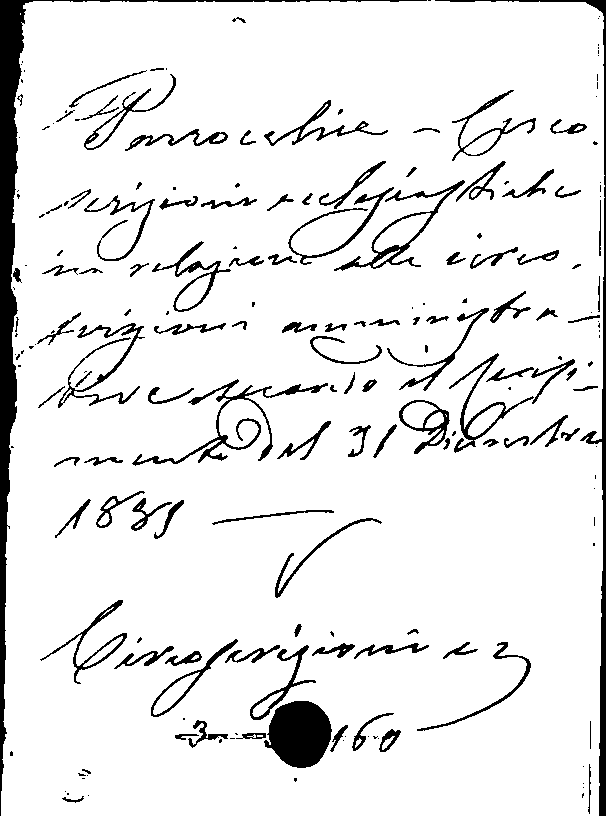 Parrocchie - Circo.
scrizioni ecclesiastiche
in relazione alle circo.
scrizioni amministra-
tive secondo il Censi-
mento del 31 Dicembre
1881
Circoscrizioni e
160